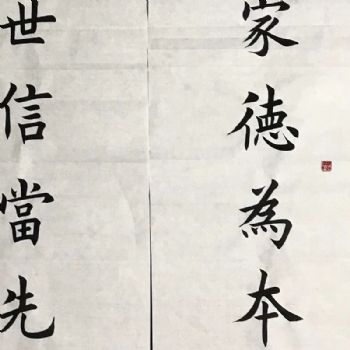 家德為本
世信當先